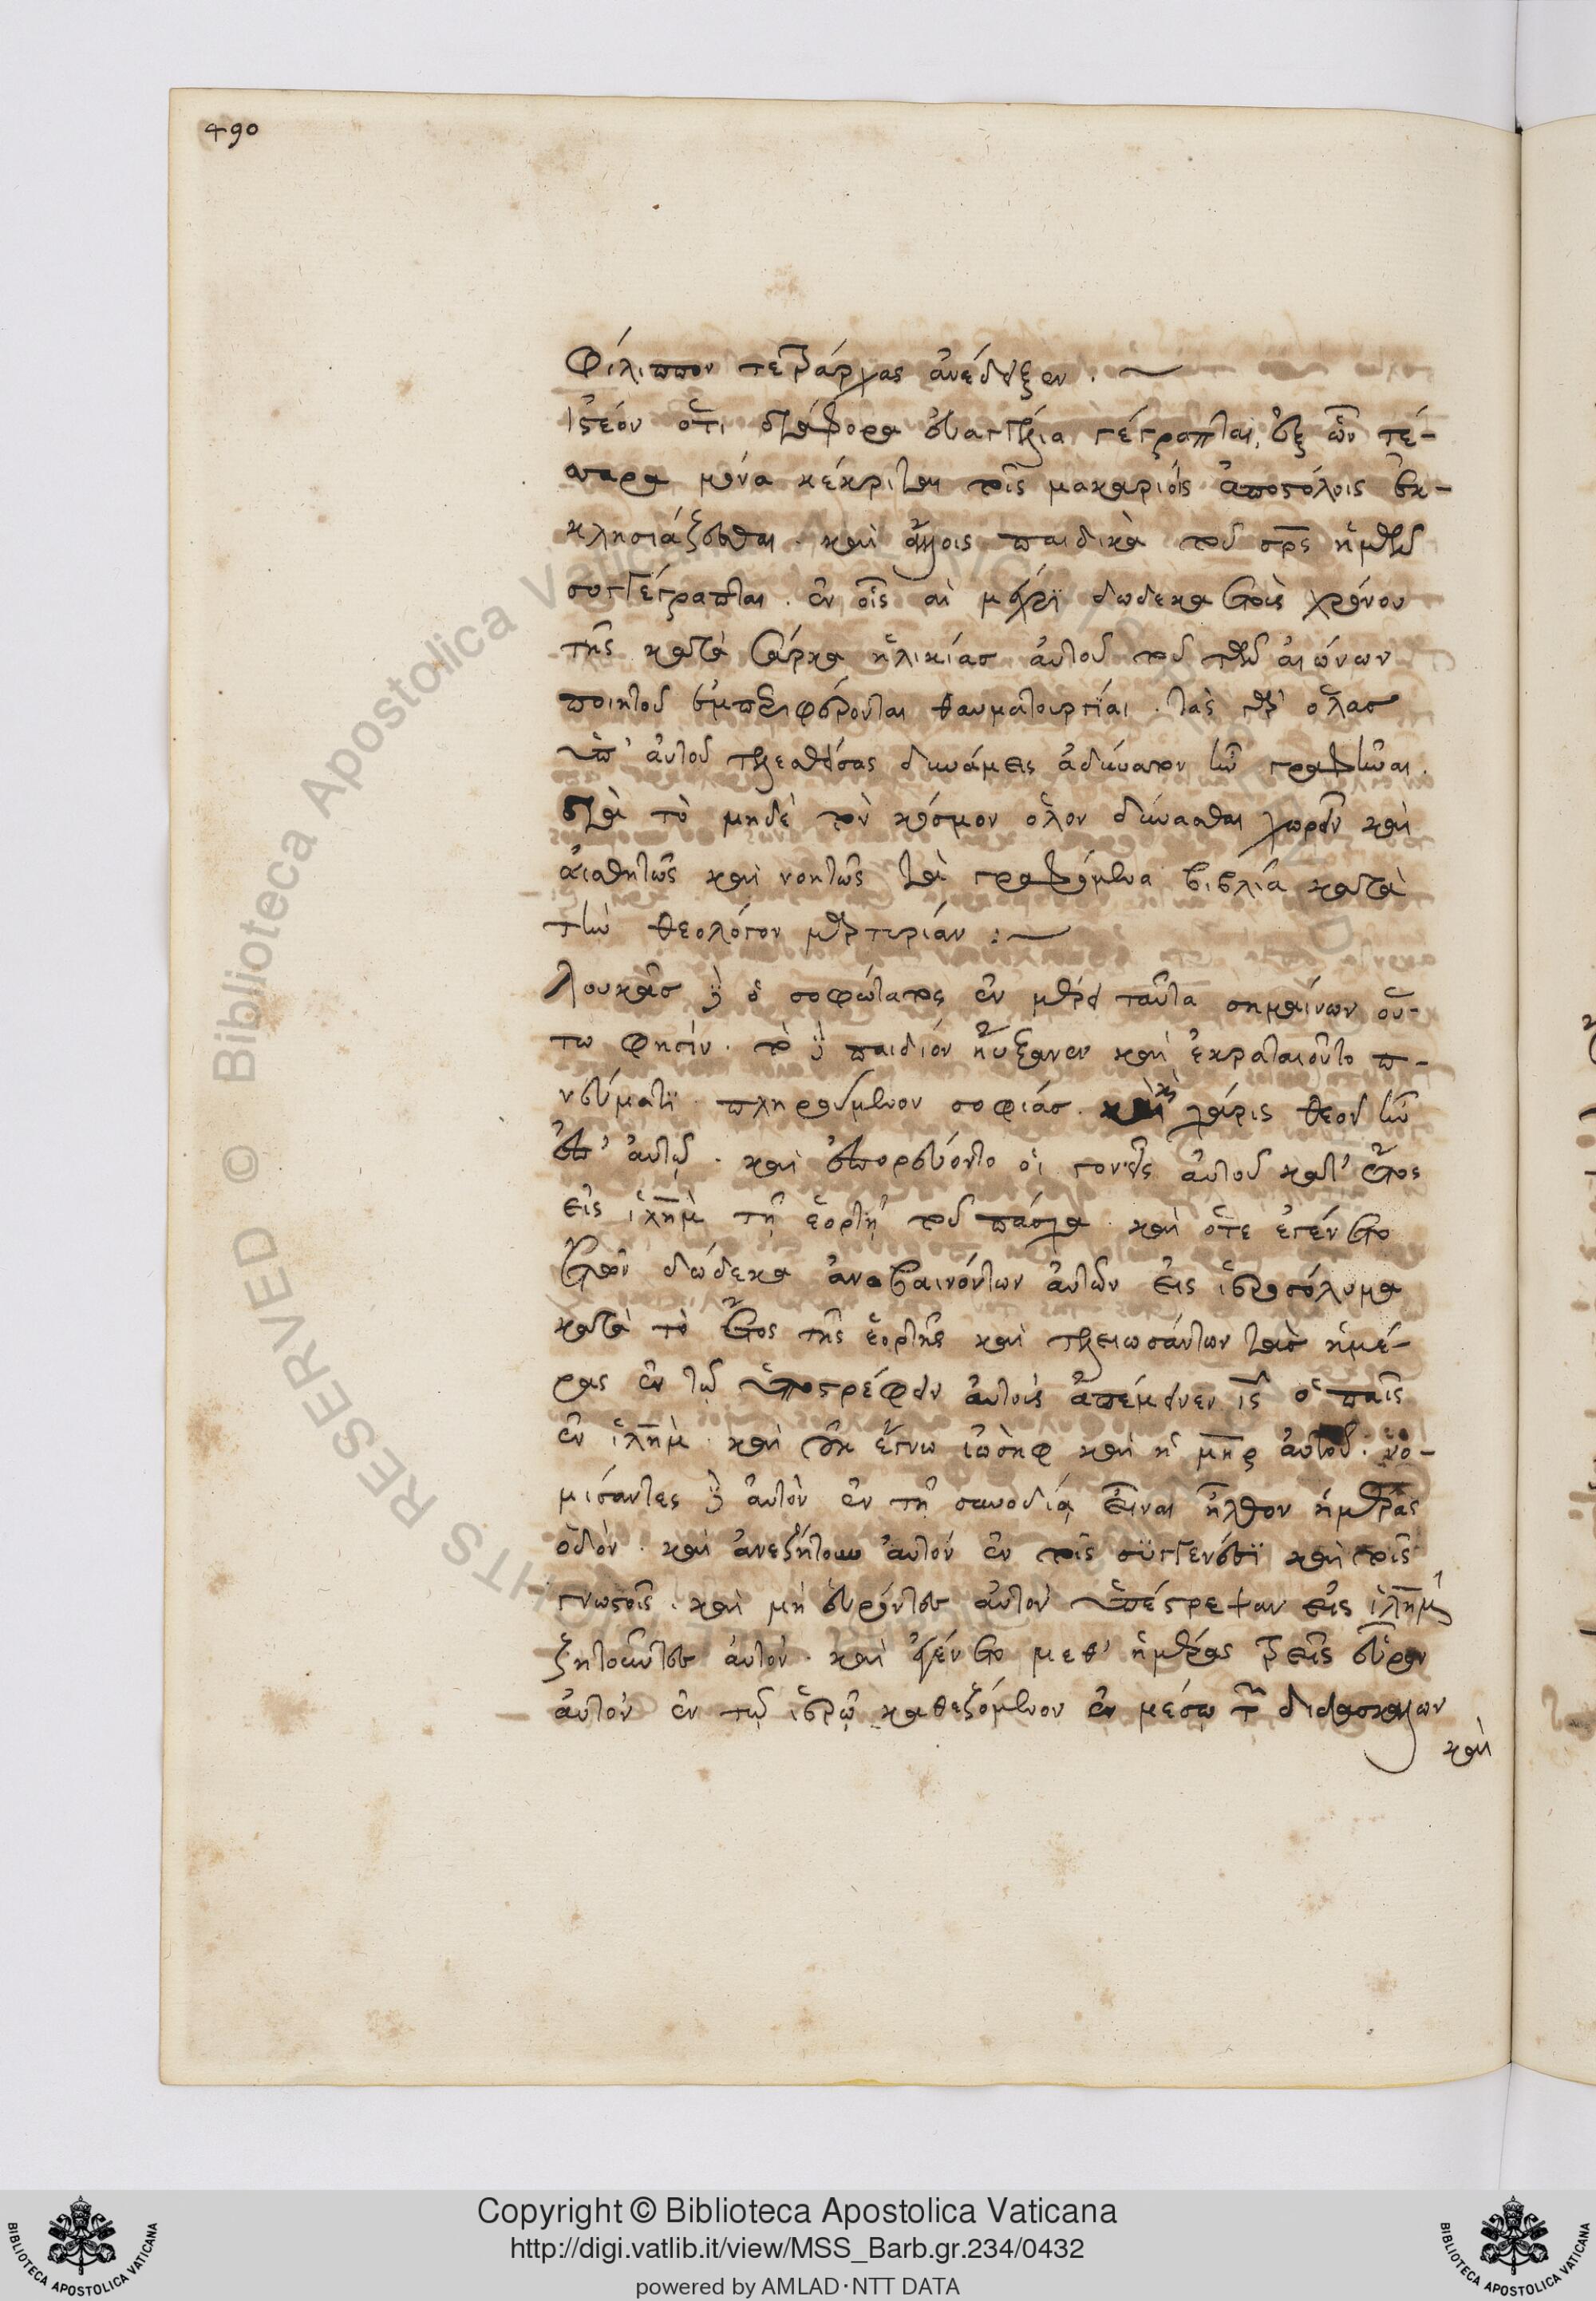 490
Φίλιππον τετράρχας ἀνέδειξεν.
Ἰστέον ὅτι διάφορα εὐαγγέλια γέγραπται, ἐξ ὧν τέ-
σσαρα μόνα κέκριται τοῖς μακαρίοις ἀποστόλοις ἐκ-
κλησιάζεσθαι. καὶ ἄλλοις παιδικὰ τοῦ σρς ἡμῶν
συγγέγραπται. ἐν οἷς αἱ μέχρι δώδεκα ἐτοῦς χρόνου
τῆς κατὰ σάρκα ἡλικίας αὐτοῦ τοῦ τῶν αἰώνων
ποιητοῦ ἐμπεριφέρονται θαυματουργίαι. τὰς γὰρ ὅλας
ὑπ' αὐτοῦ τελεσθείσας δυνάμεις ἀδύνατον ἦν γραφῆναι.
διὰ τὸ μηδὲ τὸν κόσμον ὅλον δύνασθαι χωρεῖν καὶ
αἰσθητῶς καὶ νοητῶς τὰ γραφόμενα βιβλία κατὰ
τὴν θεολόγον μαρτυρίαν:
Λουκᾶς δὲ ὁ σοφώτατος ἐν μέρει ταῦτα σημαίνων οὕ-
τω φησίν. τὸ δὲ παιδίον ηὔξανεν καὶ ἐκραταιοῦτο π-
νεύματι πληρούμενον σοφίας. καὶ χάρις θεοῦ ἦν
ἐπ' αὐτῷ. καὶ ἐπορεύοντο οἱ γονεῖς αὐτοῦ κατ' ἔτος
εἰς ἰλημ τῇ ἑορτῇ τοῦ πάσχα. καὶ ὅτε ἐγένετο
ἐτῶν δώδεκα ἀναβαινόντων αὐτῶν εἰς ἱεροσόλυμα
κατὰ τὸ ἔθος τῆς ἑορτῆς καὶ τελειωσάντων τὰς ἡμέ-
ρας ἐν τῷ ὑποστρέφειν αὐτοὺς ἀπέμεινεν ις ὁ παῖς
ἐν ἰλημ. καὶ οὐκ ἔγνω ἰωσὴφ καὶ ἡ μηρ αὐτοῦ. νο-
μίσαντες δὲ αὐτὸν ἐν τῇ συνοδίᾳ εἶναι ἦλθον ἡμέρας
ὁδόν. καὶ ἀνεζήτουν αὐτόν ἐν τοῖς συγγενέσι καὶ τοῖς
γνωστοῖς. καὶ μὴ εὑρόντες αὐτὸν ὑπέστρεψαν εἰς ἰλημ
ζητοῦντες αὐτόν. καὶ ἐγένετο μεθ' ἡμέρας τρεῖς εὗρον
αὐτὸν ἐν τῷ ἱερῷ καθεζόμενον ἐν μέσῳ τῶν διδασκάλων
καὶ
© Biblioteca Apostolica Vaticana
Copyright © Biblioteca Apostolica Vaticana
http://digi.vatlib.it/view/MSS_Barb.gr.234/0432
powered by AMLAD·NTT DATA
BIBLIOTECA APOSTOLICA VATICANA
BIBLIOTECA APOSTOLICA VATICANA